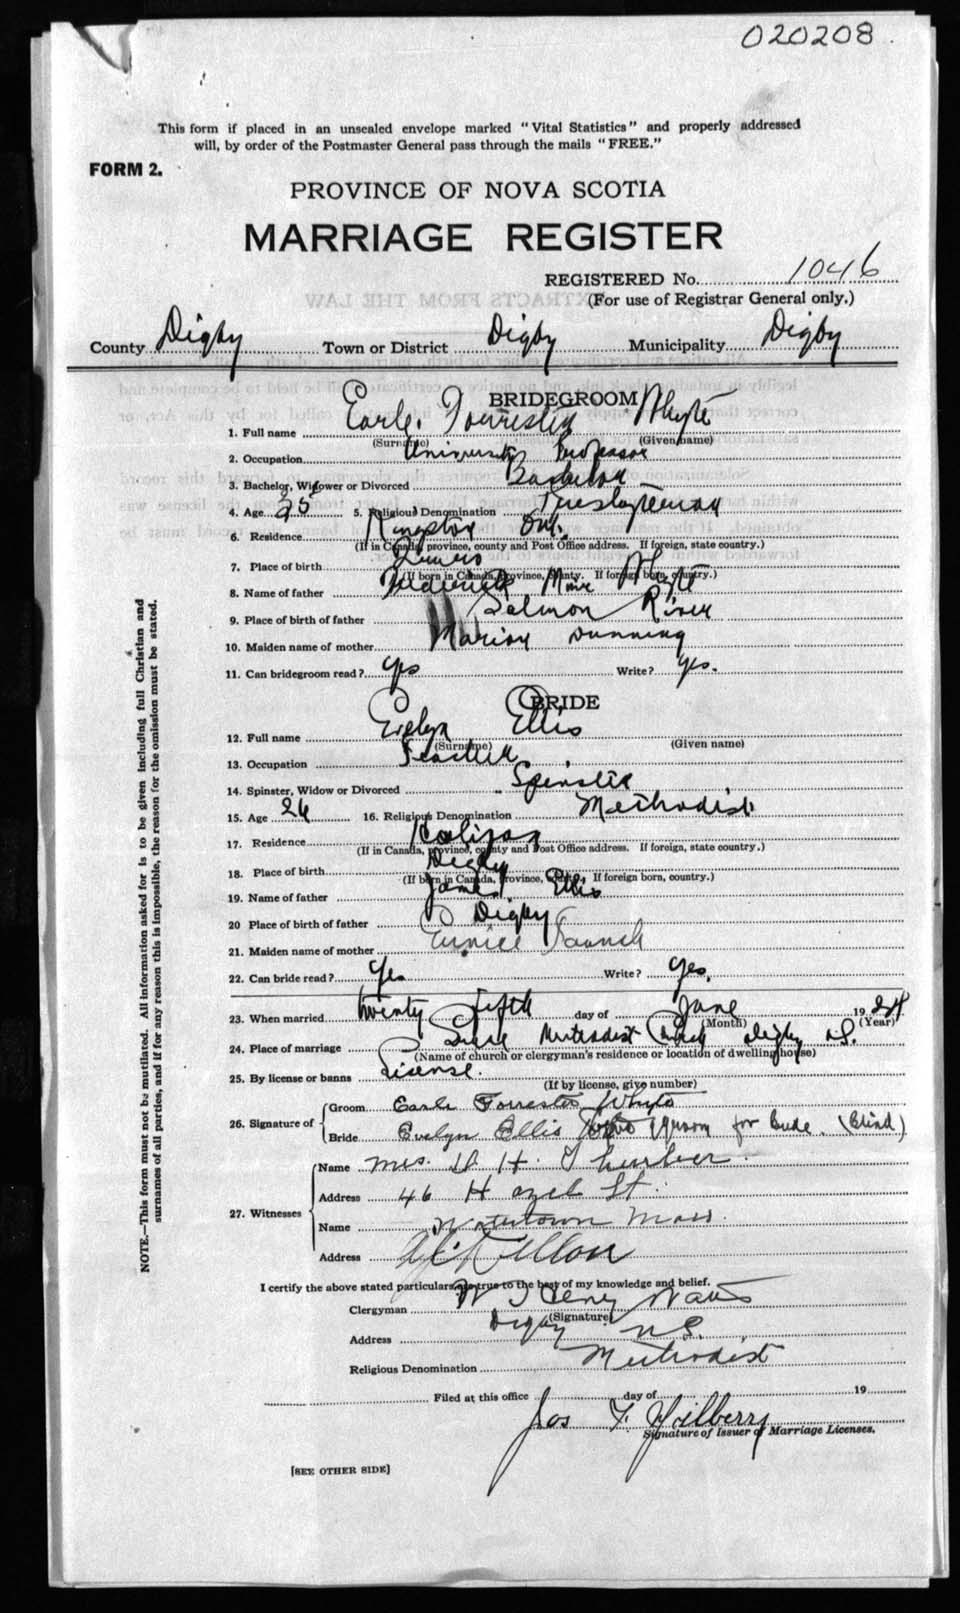 020208
This form if placed in an unsealed envelope marked "Vital Statistics" and properly addressed
will, by order of the Postmaster General pass through the mails "FREE."
FORM 2.
PROVINCE OF NOVA SCOTIA
MARRIAGE REGISTER
REGISTERED No. 1046
(For use of Registrar General only.)
County Digby Town or District Digby Municipality Digby
BRIDEGROOM
1. Full name Earle Forrester Whyte
(Surname) (Given name)
2. Occupation University Professor
3. Bachelor, Widower or Divorced Bachelor
4. Age 25 5. Religious Denomination Presbyterian
6. Residence Kingston Ont.
(If in Canada, province, county and Post Office address. If foreign, state country.)
7. Place of birth
(If born in Canada, province, county. If foreign born, country.)
8. Name of father Frederick Whyte
9. Place of birth of father Salmon River
10. Maiden name of mother Marion Dunning
11. Can bridegroom read? yes Write? yes.
BRIDE
12. Full name Evelyn Ellis
(Surname) (Given name)
13. Occupation Teacher
14. Spinster, Widow or Divorced Spinster
15. Age 26 16. Religious Denomination Methodist
17. Residence Halifax
(If in Canada, province, county and Post Office address. If foreign, state country.)
18. Place of birth Digby
(If born in Canada, province, county. If foreign born, country.)
19. Name of father James Ellis
20 Place of birth of father Digby
21. Maiden name of mother Eunice
22. Can bride read? yes Write? yes.
23. When married twenty fifth day of June 1924
(Month) (Year)
24. Place of marriage Grace Methodist Church Digby N.S.
(Name of church or clergyman's residence or location of dwelling house)
25. By license or banns License.
(If by license, give number)
26. Signature of Groom Earle Forrester Whyte
Bride Evelyn Ellis Groom for Bride. (Blind)
27. Witnesses Name Mrs. D. H. Thurber.
Address 46 Hazel St.
Name Watertown Mass.
Address
I certify the above stated particulars are true to the best of my knowledge and belief.
Clergyman W Henry Watts
(Signature)
Address Digby N.S.
Religious Denomination Methodist
Filed at this office day of 19
Jos F. Gilberry
Signature of Issuer of Marriage Licenses.
[SEE OTHER SIDE]
NOTE.—This form must not be mutilated. All information asked for is to be given including full Christian and
surnames of all parties, and if for any reason this is impossible, the reason for the omission must be stated.